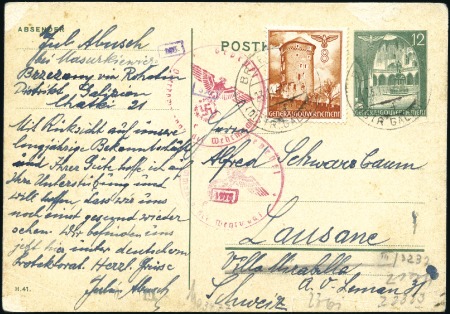 ABSENDER
Jul Abusch
bei Masurkiewicz
Brzezany via Rohatin
Distrikt Galizien
Chatki 21
Mit Rücksicht auf unsere
langjährige Bekanntschaft
und Ihrer Güte hoffe ich auf
Ihre Unterstützung und
will hoffen, dass wir uns
noch einst gesund wieder
sehen. Wir befinden uns
jetzt hier unter deutschem
Protektorat. Herzl. Grüsse
Julius Abusch
H.41.
POSTK
8
GENERALGOUVERNEMENT
12
Herrn
Alfred Schwarzbaum
Lausanne
Villa Mirabella
A. v. Leman
Schweiz